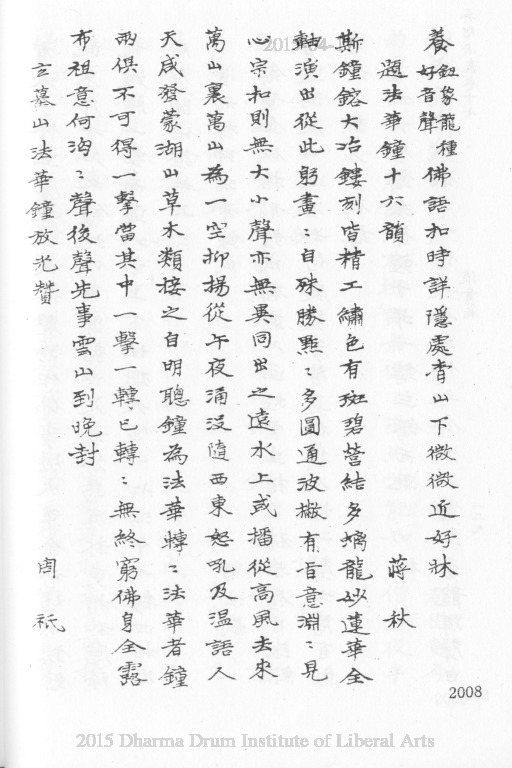 養鈕象龍種佛語扣時詳隱處杳山下微微近好牀
好音聲
題法華鐘十六韻 蔣秋
斯鐘鎔大冶鏤刻皆精工繡色有斑碧營結多螭龍妙蓮華全
軸演出從此躬畫〻自殊勝點〻多圓通波撇有旨意淵〻見
心宗扣則無大小聲亦無異同出之遠水上或播從高風去來
萬山裏萬山為一空抑揚從午夜涌沒隨西東怒吼及温語人
天咸發蒙湖山草木類接之自明聰鐘為法華轉〻法華者鐘
兩俱不可得一擊當其中一擊一轉已轉〻無終窮佛身全露
布祖意何洶〻聲後聲先事雲山到晚封
玄墓山法華鐘放光贊 周祇
2008
2015-04-
2015 Dharma Drum Institute of Liberal Arts